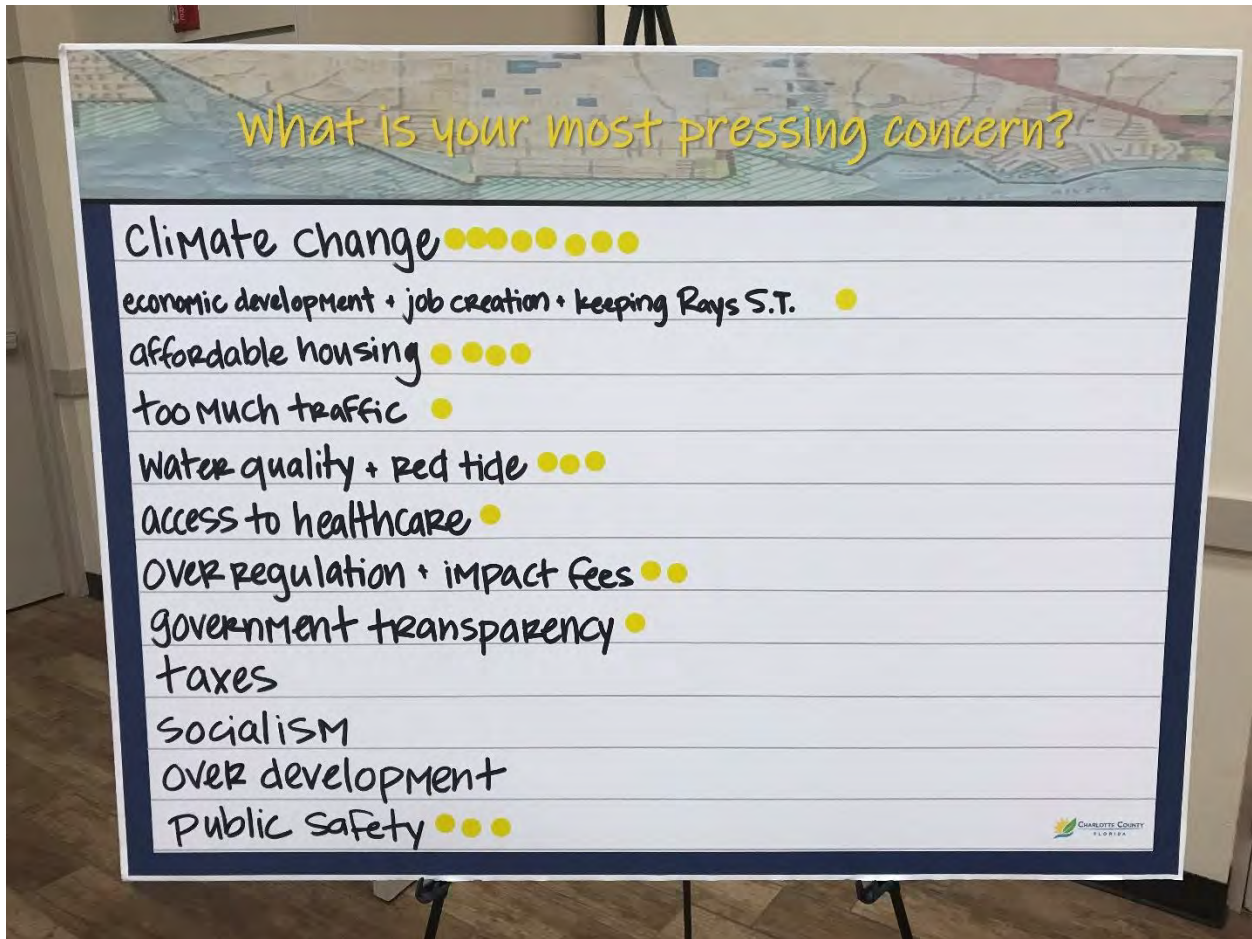 What is your most pressing concern?
climate change
economic development + job creation + keeping Rays S.T.
affordable housing
too much traffic
water quality + red tide
access to healthcare
over regulation + impact fees
government transparency
taxes
socialism
over development
public safety
CHARLOTTE COUNTY
FLORIDA